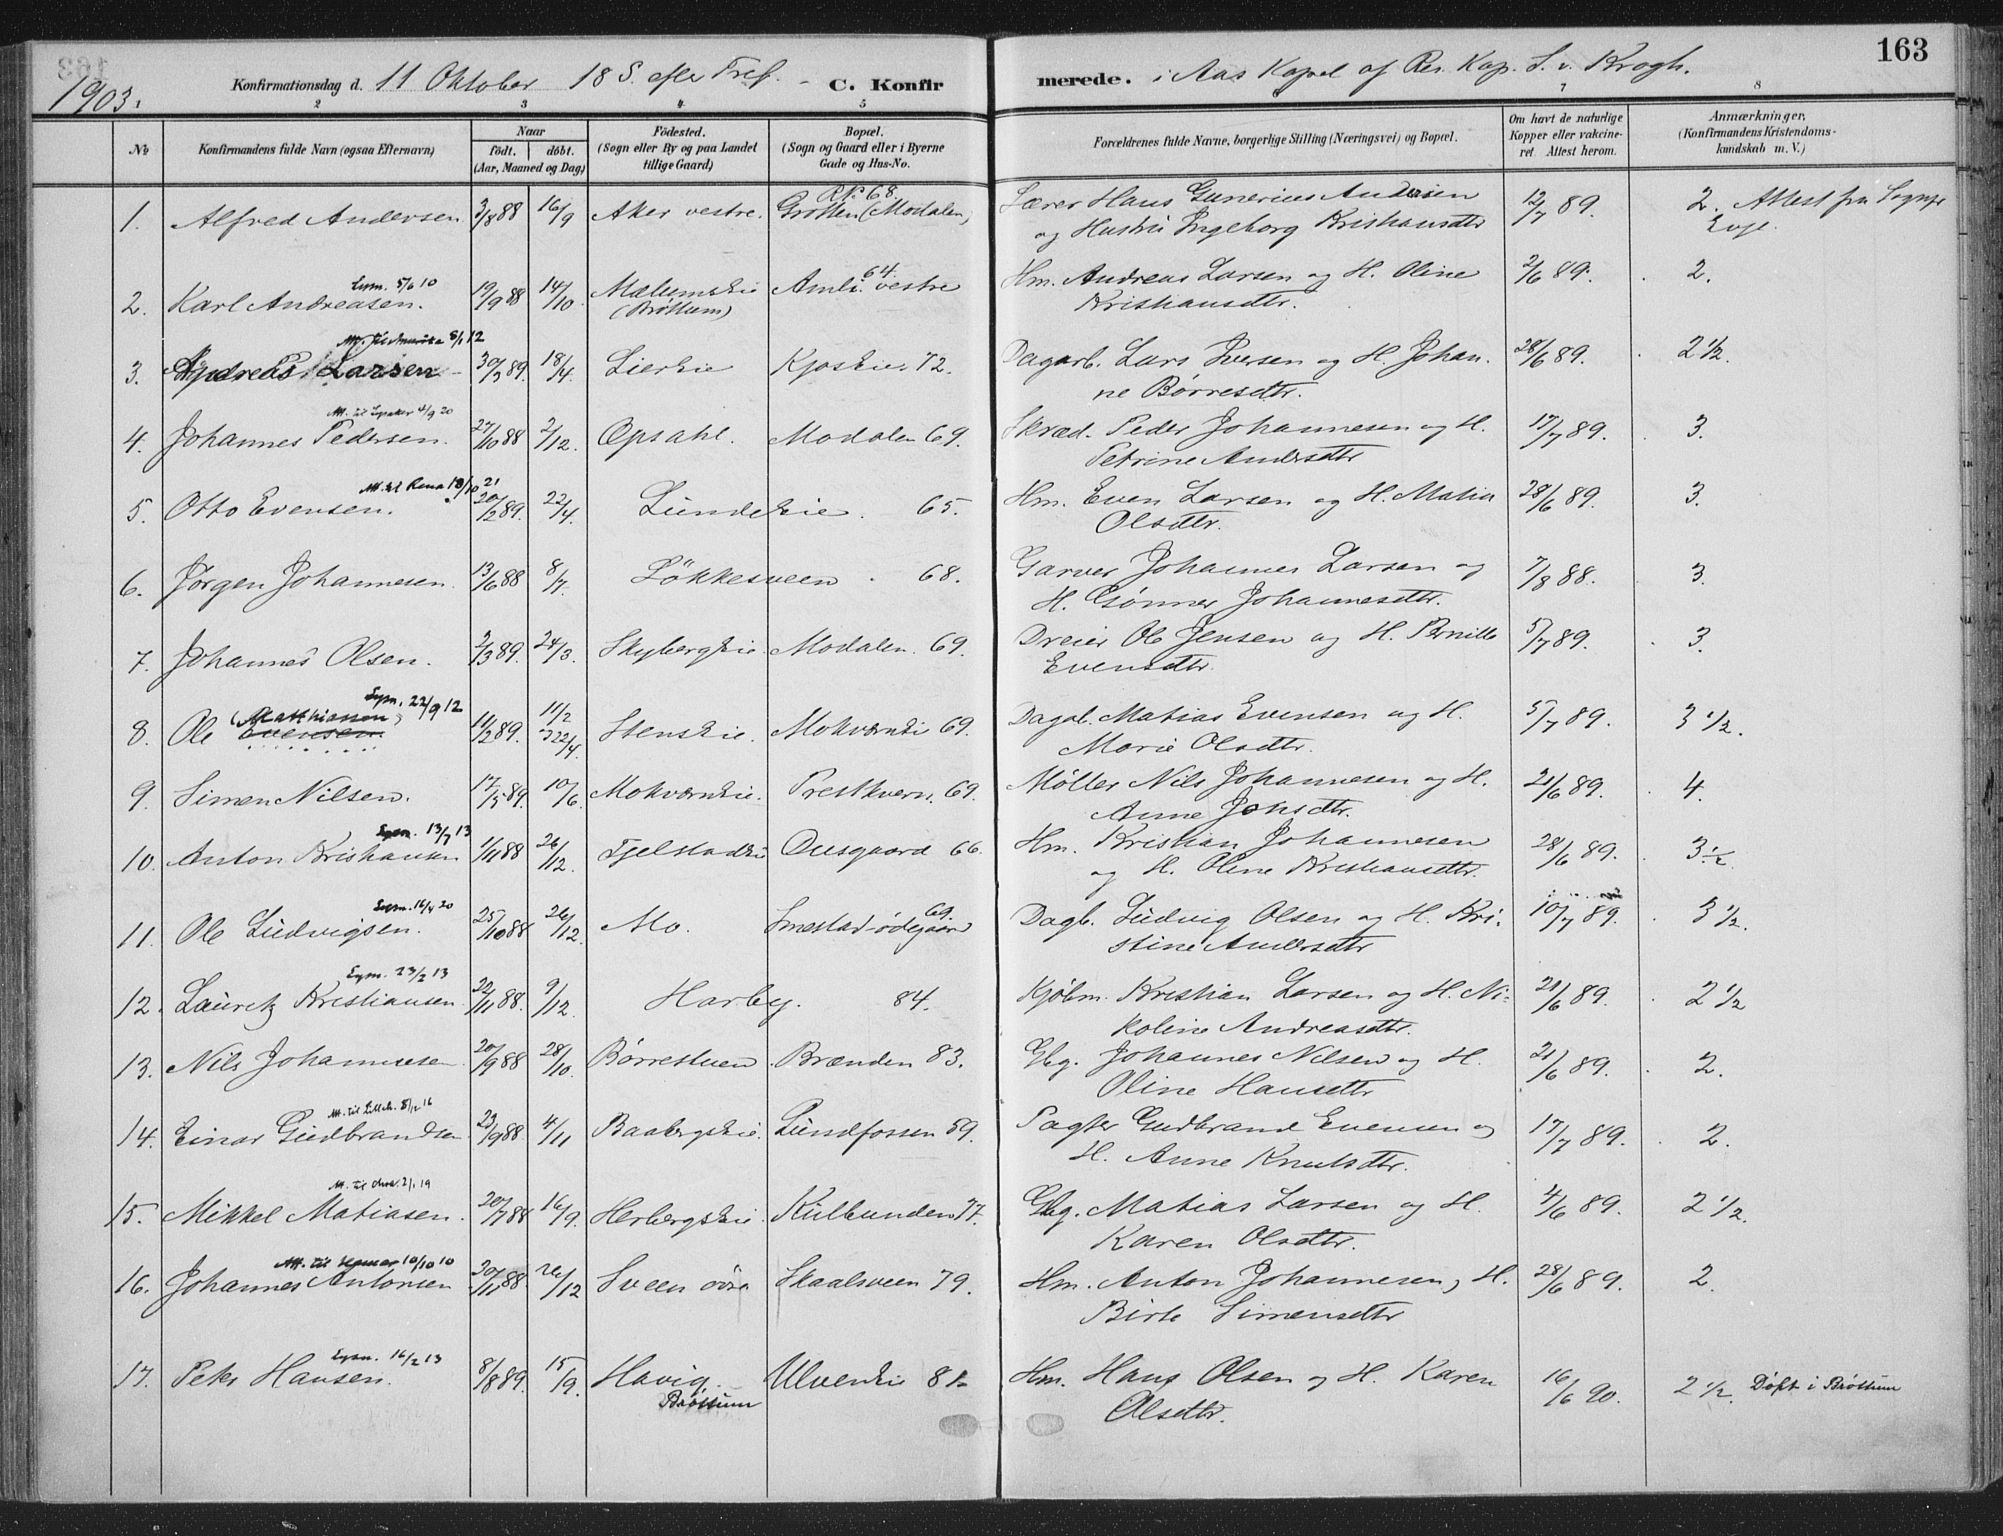 163
1903.
Konfirmationsdag d. 11 Oktober 18 S. efter Tref. – C. Konfirmerede. i Aas Kapel af Res. Kap. S. v. Krogh.
2 3 4 5 7 8
№ Konfirmandens fulde Navn (ogsaa Efternavn) Naar født. døbt. (Aar, Maaned og Dag) Fødested. (Sogn eller By og paa Landet tillige Gaard) Bopæl. (Sogn og Gaard eller i Byerne Gade og Hus-No. Forældrenes fulde Navne, borgerlige Stilling (Næringsvei) og Bopæl. Om havt de naturlige Kopper eller vakcineret. Attest herom. Anmærkninger, (Konfirmandens Kristendomskundskab m. V.)
1. Alfred Andersen 3/8 88 16/9 Aker vestre. Grotten (Modalen) 68. Lærer Hans Gunerius Andersen 12/7 89. 2. Attest fra Sognepr
og Hustru Ingeborg Kristiansdtr
Eym. 5/6 10
2. Karl Andreasen. 19/9 88 14/10 Mælumseie Amli vestre 64. Hm. Andreas Larsen og H. Oline 2/6 89. 2.
(Brøttum) Kristiansdtr.
8/1 12
3. Andreas Larsen 30/3 89. 18/4 Liereie Kjoseie. 72. Dagarb. Lars Iversen og H. Johan- 28/6 89. 2 1/2.
ne Børresdtr.
Att. til Lysaker 4/9 20
4. Johannes Pedersen. 27/10 88 2/12. Opsahl. Modalen 69. Skræd. Peder Johannesen og H. 17/7 89. 3.
Petrine Andersdtr
Att. til Rena 18/10 21
5. Otto Evensen. 20/2 89. 22/4. Lundeeie. 65. Hm. Even Larsen og H. Matia 28/6 89. 3.
Olsdtr.
6. Jørgen Johannesen. 13/6 88 8/7. Løkkesveen. 68. Garver Johannes Larsen og 7/8 88. 3.
H. Gønner Johannesdtr.
7. Johannes Olsen. 2/3 89. 24/3. Skybergeie. Modalen. 69. Dreier Ole Jensen og H. Pernille 5/7 89. 3.
Evensdtr.
Eym. 22/9 12
8. Ole (Matthiassen) Evensen. 11/2 89. 22/4. Stenseie. Mokværneie 69. Dagarb. Matias Evensen og H. 5/7 89. 3 1/2.
Marie Olsdtr.
9. Simen Nilsen. 17/5 89. 10/6. Mokværneie. Prestkvern. 69. Møller Nils Johannesen og H. 21/6 89. 4.
Anne Jonsdtr.
Eym. 13/7 13
10. Anton Kristiansen 1/11 88 26/12. Fjelstadeie Ousgaard 66. Hm. Kristian Johannesen 28/6 89. 3 1/2
og H. Oline Kristiansdtr.
Eym. 16/4 20
11. Ole Ludvigsen. 25/10 88 26/12. Mo. Smestad-ødegaard 69. Dagb. Ludvig Olsen og H. Kri- 10/7 89. 3 1/2.
stine Andersdtr
Eym. 23/2 13
12. Lauretz Kristiansen. 22/11 88. 9/12. Harby. 84. Kjøbm. Kristian Larsen og H. Ni- 21/6 89. 2 1/2
koline Andreasdtr.
13. Nils Johannesen 20/9 88 28/10. Børrestuen Brænden 83. Gbg. Johannes Nilsen og H. 21/6 89. 2.
Oline Hansdtr
Att. til Lilleh. 5/12 16
14. Einar Gudbrandsen 23/9 88. 4/11 Baabergseie. Lundfossen 59. Pagter Gudbrand Evensen og 17/7 89. 2.
H. Anne Knutsdtr.
2/1 19
15. Mikkel Matiasen. 20/7 88 16/9. Herbergseie. Kulbunden 77. Gbg. Matias Larsen og H. 4/6 89. 2 1/2.
Karen Olsdtr.
Att. til Hamar 10/10 10
16. Johannes Antonsen 20/11 88 26/12 Sveen øvre Skaalsveen 79. Hm. Anton Johannesen, H. 28/6 89. 2.
Birte Simensdtr
Eym. 16/2 13
17. Peter Hansen. 8/8 89. 15/9. Havig. Ulveneie Hm. Hans Olsen og H. Karen 16/6 90. 2 1/2. Døpt i Brøttum
Brøttum Olsdtr.